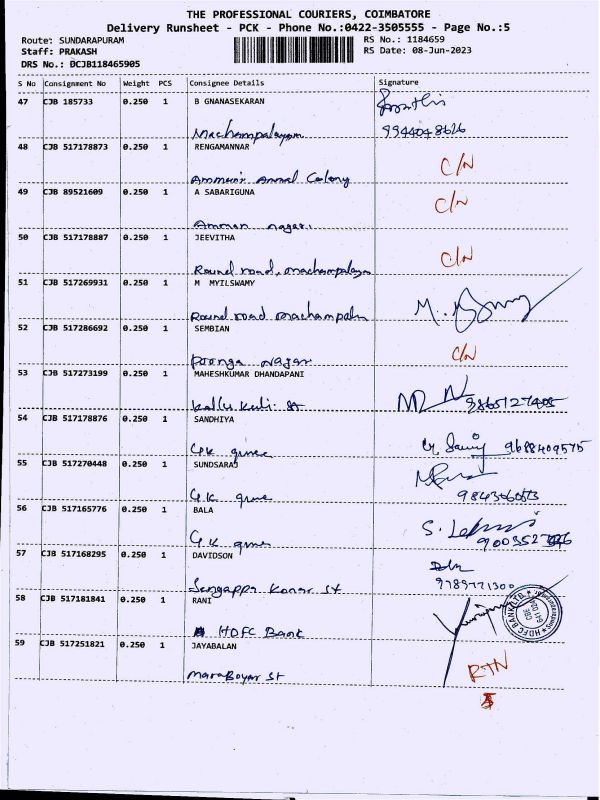 THE PROFESSIONAL COURIERS, COIMBATORE
Delivery Runsheet - PCK - Phone No.:0422-3505555 - Page No.:5
Route: SUNDARAPURAM RS No.: 1184659
Staff: PRAKASH RS Date: 08-Jun-2023
DRS No.: DCJB118465905
S No Consignment No Weight PCS Consignee Details Signature
47 CJB 185733 0.250 1 B GNANASEKARAN
Machampalayam 9944048616
48 CJB 517178873 0.250 1 RENGAMANNAR
C/N
Colony
49 CJB 89521609 0.250 1 A SABARIGUNA
C/N
Amman nagar
50 CJB 517178887 0.250 1 JEEVITHA
C/N
Round road, machampalayam
51 CJB 517269931 0.250 1 M MYILSWAMY
Round road machampalm
52 CJB 517286692 0.250 1 SEMBIAN
C/N
Poonga Nagar
53 CJB 517273199 0.250 1 MAHESHKUMAR DHANDAPANI
St
54 CJB 517178876 0.250 1 SANDHIYA
9688409575
G.K
55 CJB 517270448 0.250 1 SUNDSARAJ
G.K
56 CJB 517165776 0.250 1 BALA
G.K
57 CJB 517168295 0.250 1 DAVIDSON
9789771300
Sengappa Konar St
58 CJB 517181841 0.250 1 RANI
HDFC Bank
HDFC BANK LTD.
59 CJB 517251821 0.250 1 JAYABALAN
RTN
MaraBoyar St